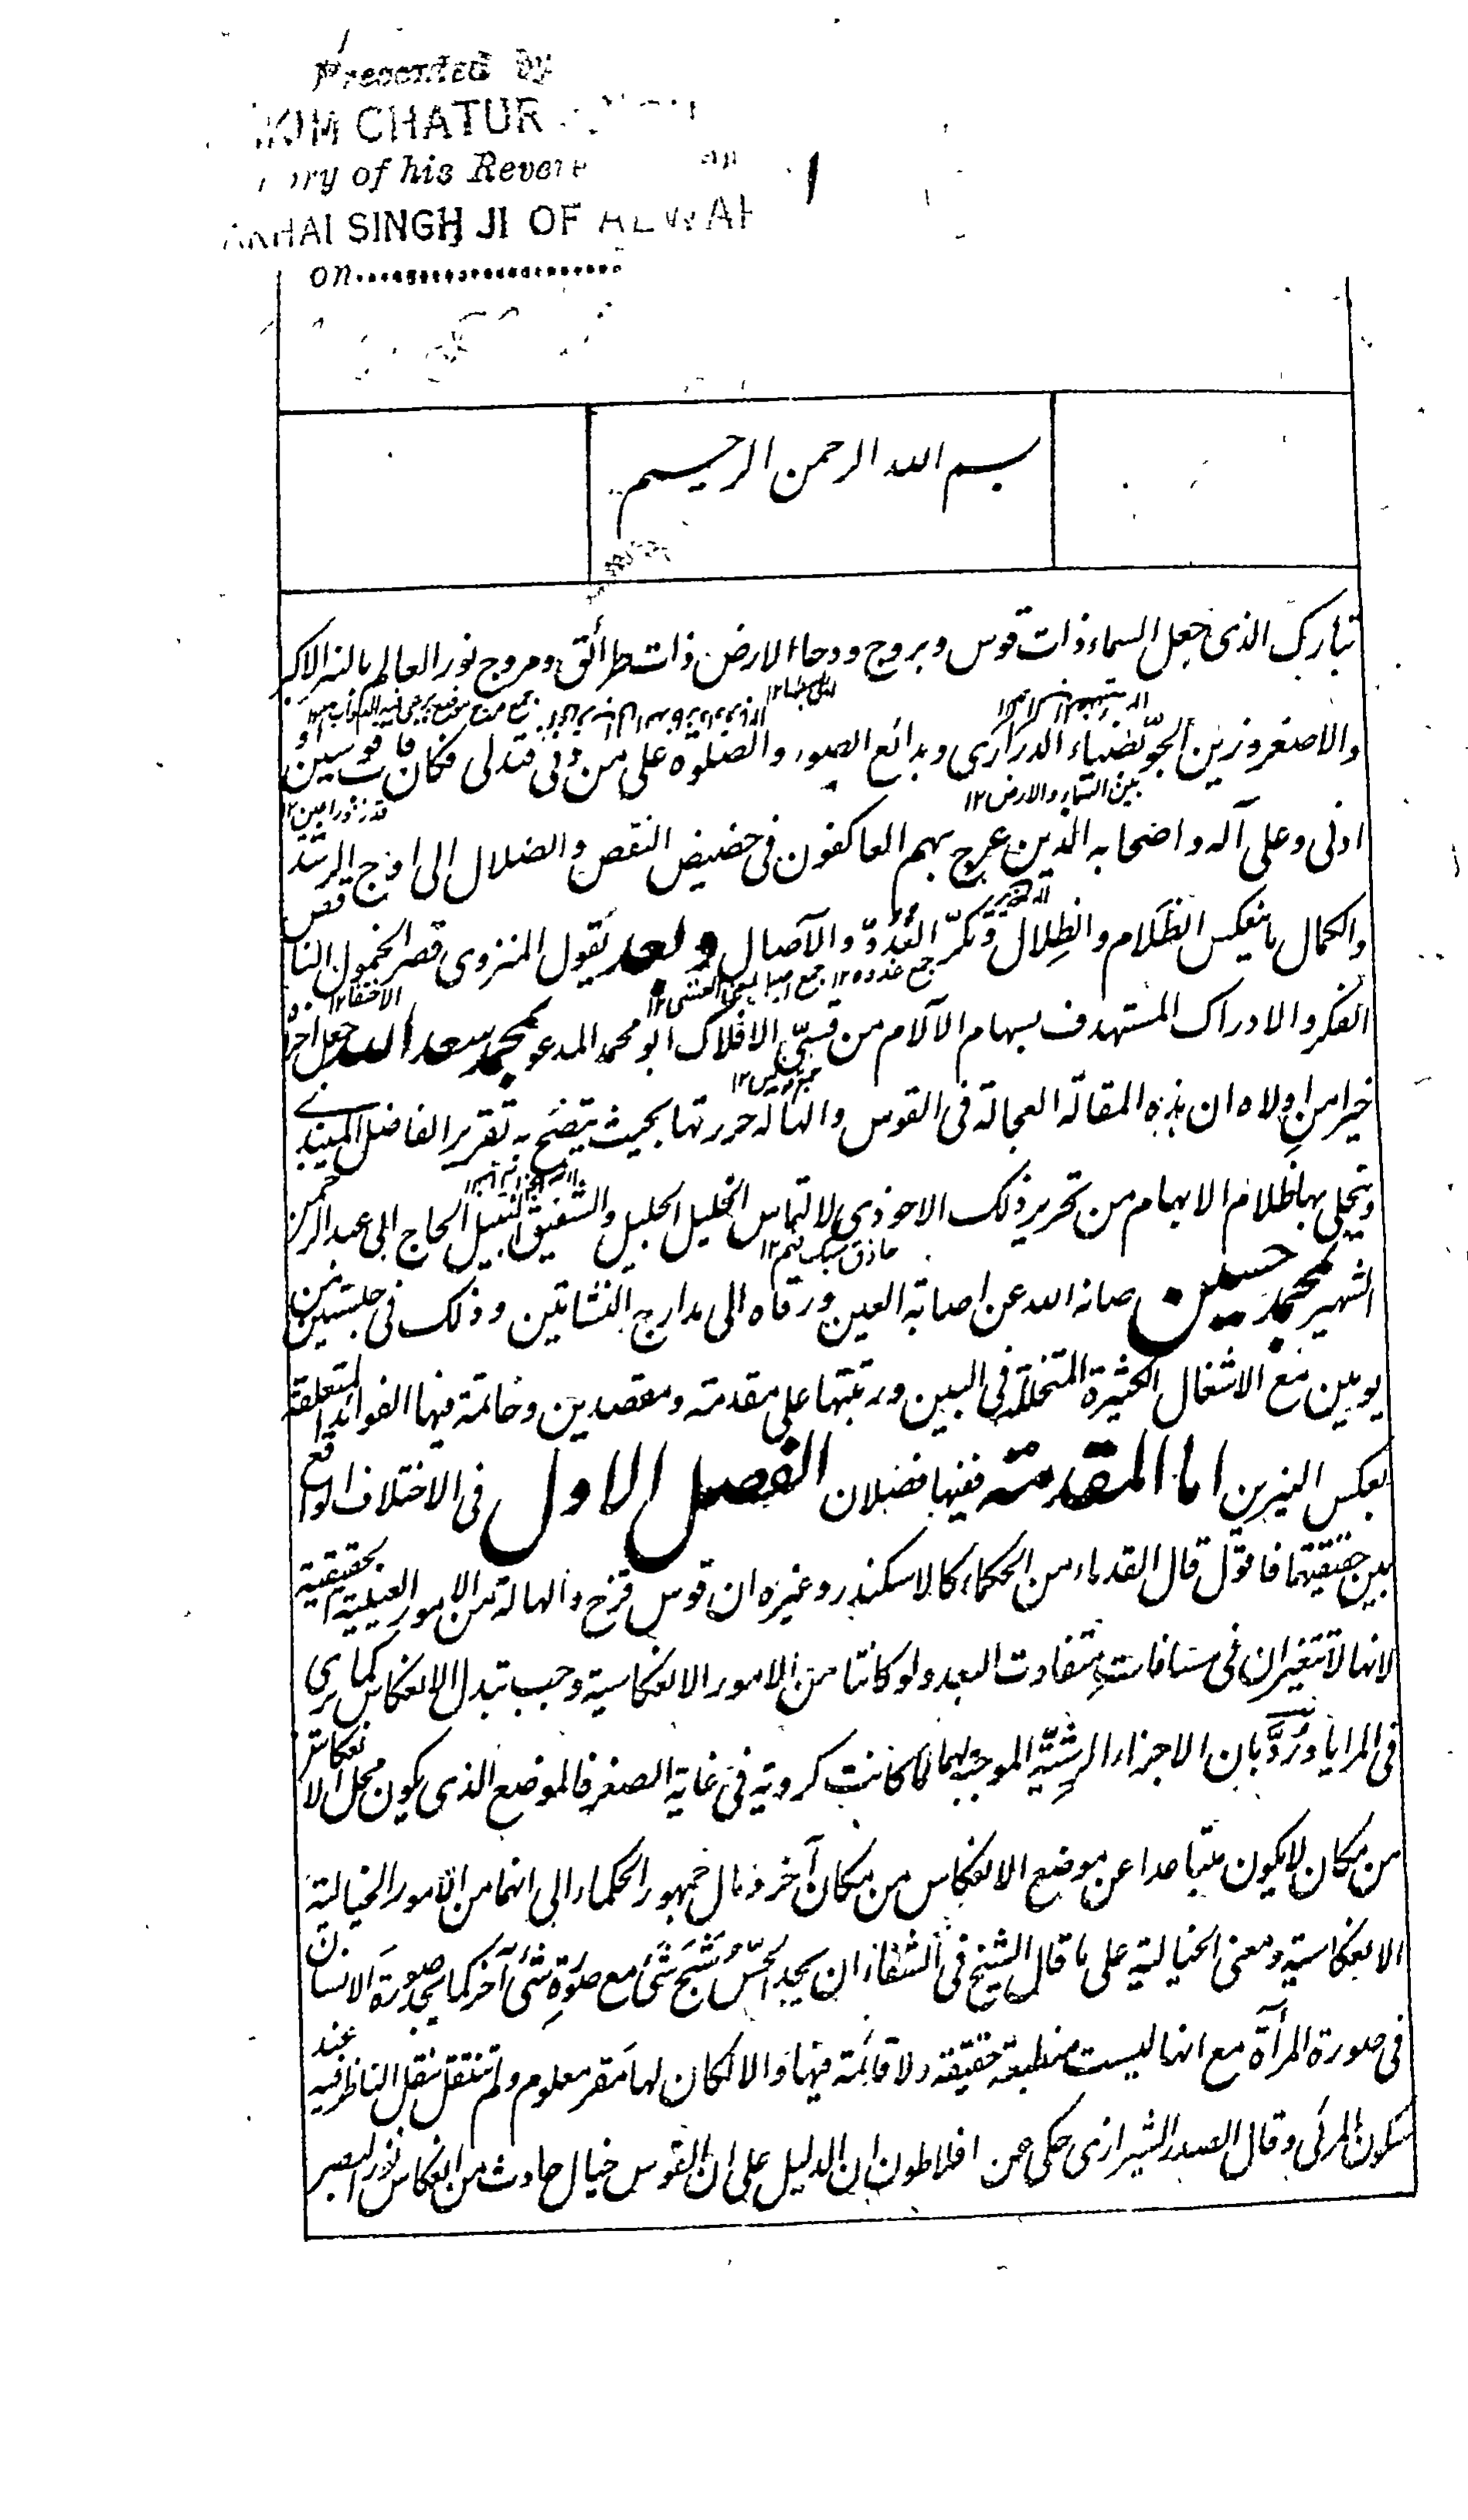 Presented by
KIM CHATUR
ory of his Rever
AKHAI SINGH JI OF ALWAR
on
بسم الله الرحمن الرحيم
تبارك الذى جعل السماء ذات قوس وبروج ودحا الارض ذات طرائق ومروج نور العالم بالنير الاكبر
والاصغر وزين الجوّ بضياء الدرارى وبدائع الصور والصلوة على من دنى فتدلى فكان قاب قوسين او
بين السماء والارض ١٢
ادنى وعلى آله واصحابه الذين عرج بهم العاكفون فى حضيض النقص والضلال الى اوج الرشد
والكمال ما ينعكس الظلام والظلال وتكرّ الغُدُوّ والآصال وبعد يقول المنزوى قصر الخمول الناقص
جمع غدوه ١٢ جمع اصيل بمعنى العشى ١٢
الاختفا ١٢
الفكر والادراك المستهدف بسهام الآلام من قسىّ الافلاك ابو محمد المدعو بمحمد سعد الله جعل اخراه
جمع قوس ١٢
خيرا من اولاه ان هذه المقالة العجالة فى القوس والهاله حررتها بحيث يتضح به تقرير الفاضل الميبذى
وينجلى بها ظلام الابهام من تحرير ذلك الاحوذى لالتماس الخليل الجليل والشفيق النبيل الحاج ابى عبد الرحمن
حاذق سبك فهم ١٢
الشهير بمحمد حسين صانه الله عن اصابة العين ورقاه الى مدارج النشاتين وذلك فى جلستين من
يومين مع الاشغال الكثيرة المتخللة فى البين ورتبتها على مقدمة ومقصدين وخاتمة فيها الفوائد المتعلقة
بعكس النيرين اما المقدمة ففيها فصلان الفصل الاول فى الاختلاف الواقع
بين حقيقتهما فاقول قال القدماء من الحكماء كالاسكندر وغيره ان قوس قزح والهالة من الامور العينية الحقيقية
لانها لا تتغيران فى مسافات متفاوت البعد ولو كانتا من الامور الانعكاسية وجب تبدل الانعكاس كما يرى
فى المرايا ورُدَّ بان الاجزاء الرشيّة الموجبة لهما لما كانت كروية فى غاية الصغر فالموضع الذى يكون محل الانعكاس
من مكان لا يكون متباعدا عن موضع الانعكاس من مكان آخر ومال جمهور الحكماء الى انهما من الامور الخيالية
الانعكاسية ومعنى الخيالية على ما قال الشيخ فى الشفاء ان يجد الحسّ شبح شئ مع صورة شئ آخر كما يجد صورة الانسان
فى صورة المرآة مع انها ليست منطبعة حقيقة ولا قائمة فيها والا لكان لها مقر معلوم ولم تنتقل بنقل الناظر فيه عند
سكون المرئى وقال الصدر الشيرازى حكى عن افلاطون ان الدليل على ان القوس خيال حادث من انعكاس نور البصر